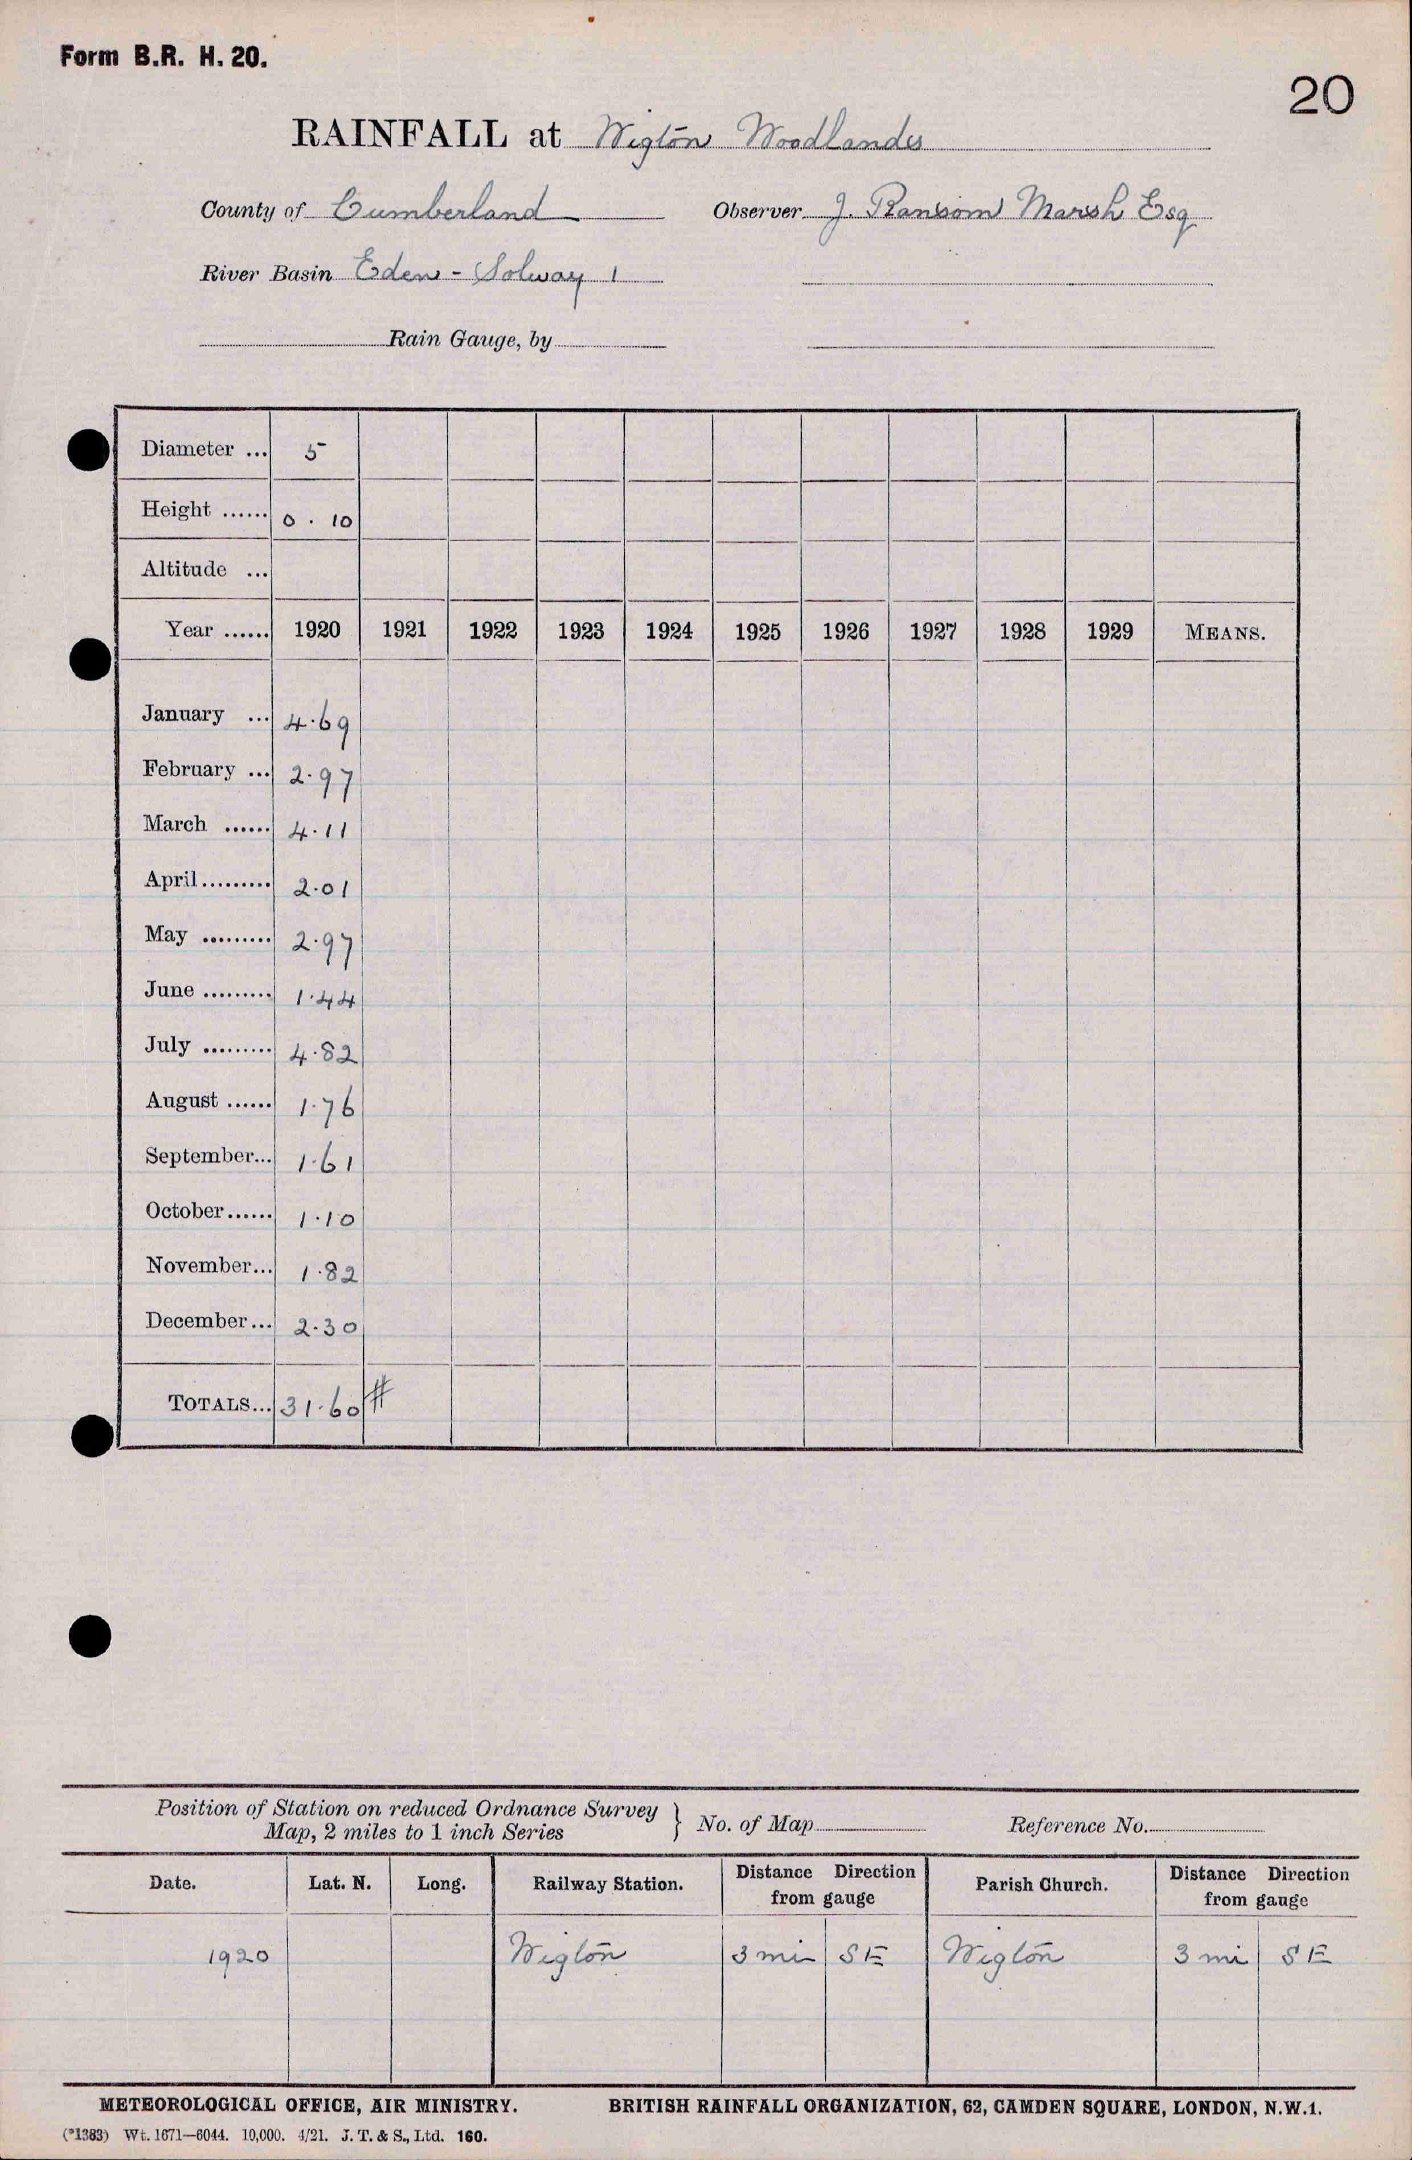 Form B.R. H. 20.
20
RAINFALL at Wigton Woodlands
County of Cumberland Observer J. Ransom Marsh Esq
River Basin Eden - Solway 1
Rain Gauge, by
Diameter ... 5
Height ...... 0 . 10
Altitude ...
Year ...... 1920 1921 1922 1923 1924 1925 1926 1927 1928 1929 MEANS.
January ... 4.69
February ... 2.97
March ...... 4.11
April......... 2.01
May ......... 2.97
June ......... 1.44
July ......... 4.82
August ...... 1.76
September... 1.61
October...... 1.10
November... 1.82
December... 2.30
TOTALS... 31.60 #
Position of Station on reduced Ordnance Survey
Map, 2 miles to 1 inch Series } No. of Map Reference No.
Date. Lat. N. Long. Railway Station. Distance Direction from gauge Parish Church. Distance Direction from gauge
1920 Wigton 3 mi SE Wigton 3 mi SE
METEOROLOGICAL OFFICE, AIR MINISTRY. BRITISH RAINFALL ORGANIZATION, 62, CAMDEN SQUARE, LONDON, N.W.1.
(*1383) Wt. 1671—6044. 10,000. 4/21. J. T. & S., Ltd. 160.